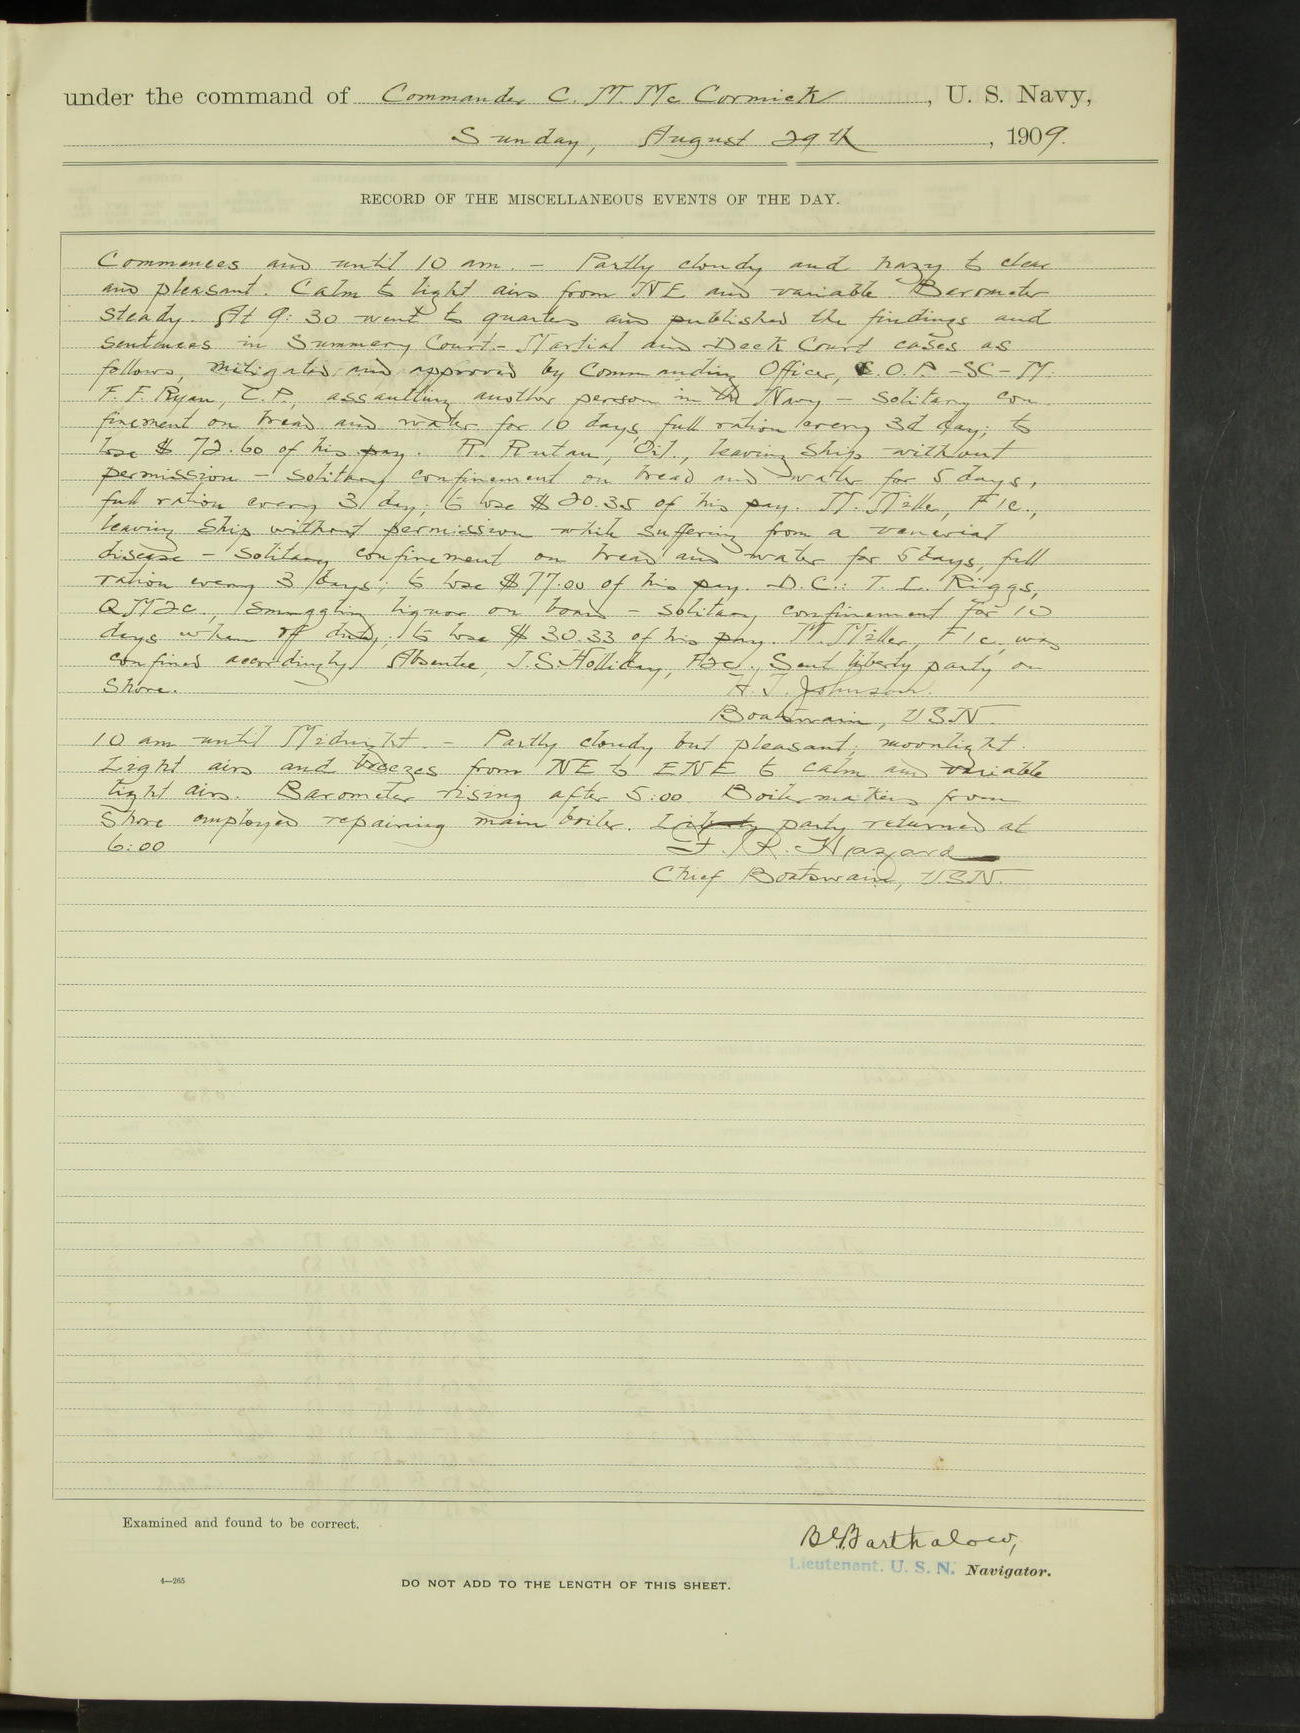 under the command of Commander C. M. McCormick, U. S. Navy,
Sunday, August 29th, 1909.
RECORD OF THE MISCELLANEOUS EVENTS OF THE DAY.
Commences and until 10 am. - Partly cloudy and hazy to clear
and pleasant. Calm to light airs from NE and variable. Barometer
steady. At 9:30 went to quarters and published the findings and
sentences in Summary Court-Martial and Deck Court cases as
follows, mitigated and approved by Commanding Officer, S.O.P. -SC-M:
F. F. Ryan, C.P., assaulting another person in the Navy - Solitary con
finement on bread and water for 10 days, full ration every 3d day; to
lose $72.60 of his pay. R. Rutan, Oil., leaving Ship without
permission - Solitary confinement on bread and water for 5 days,
full ration every 3 day; to lose $20.35 of his pay. M. Miller, F1c.,
leaving Ship without permission while suffering from a venerial
disease - Solitary confinement on bread and water for 5 days, full
ration every 3 days; to lose $77.00 of his pay. D.C.: T. L. Riggs,
QM2c., Smuggling liquor on board - Solitary confinement for 10
days when off duty; to lose $30.33 of his pay. M. Miller, F1c, was
confined accordingly. Absentee, J.S. Holliday, F2c., Sent liberty party on
Shore. H. J. Johnson.
Boatswain, USN.
10 am until Midnight. - Partly cloudy but pleasant; moonlight.
Light airs and breezes from NE to ENE to calm and variable
light airs. Barometer rising after 5:00. Boilermakers from
Shore employed repairing main boiler. Liberty party returned at
6:00 F. R. Hazard
Chief Boatswain, U.S.N.
Examined and found to be correct.
B G Barthalow,
Lieutenant. U. S. N. Navigator.
4—265
DO NOT ADD TO THE LENGTH OF THIS SHEET.